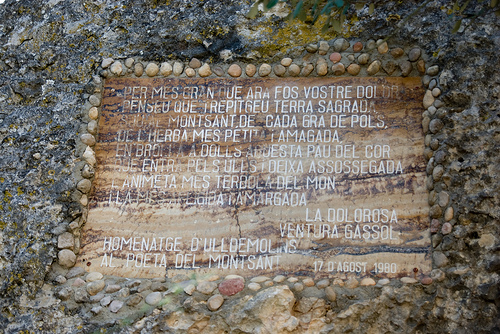 PER MES GRAN QUE ARA FOS VOSTRE DOLOR
PENSEU QUE TREPITGEU TERRA SAGRADA
MONTSANT DE CADA GRA DE POLS,
HERBA MES PETITA AMAGADA
ULLS AQUESTA PAU DEL COR
QUE ENTRA PELS ULLS I DEIXA ASSOSSEGADA
L'ANIMETA MES TERBOLA DEL MON
I LA MES AMARGADA
LA DOLOROSA
VENTURA GASSOL
HOMENATGE D'ULLDEMOLINS
AL POETA DEL MONTSANT
17 D'AGOST 1980